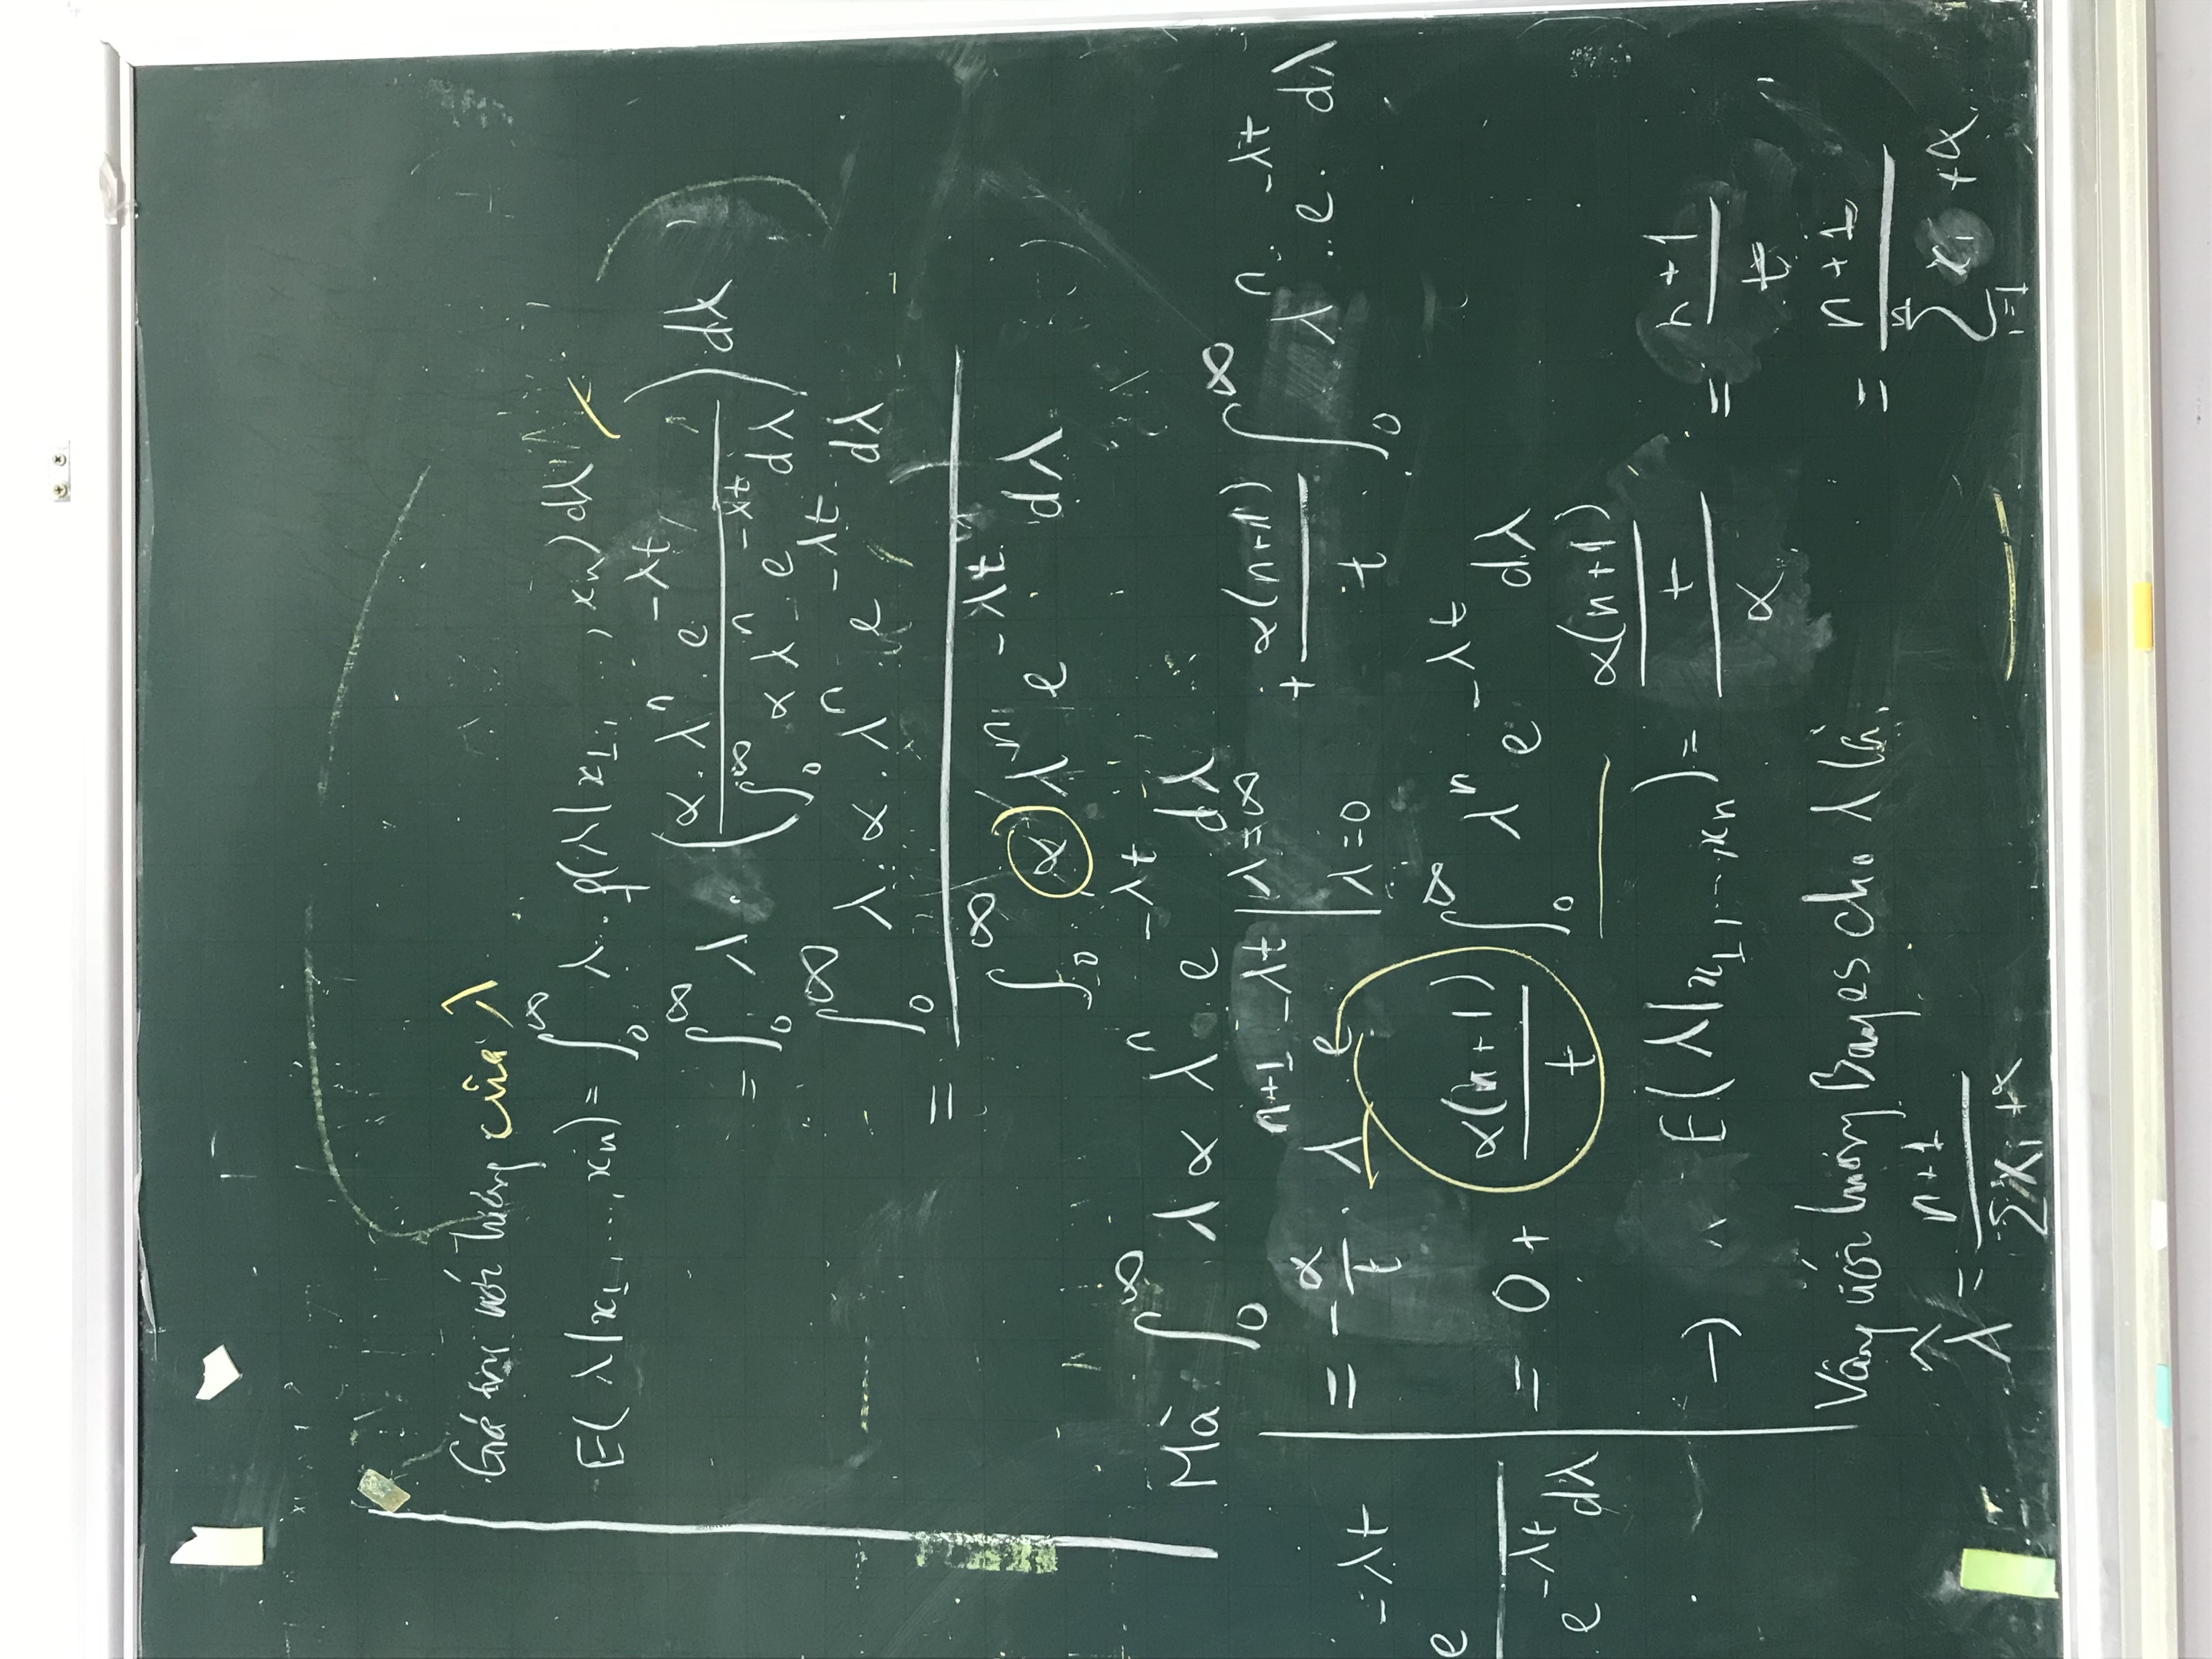 Giá trị ước lượng của λ
E(λ|x₁, ..., xₙ) = ∫₀^∞ λ . f(λ|x₁, ..., xₙ) dλ
= ∫₀^∞ λ . (α . λⁿ . e^{-λt} / ∫₀^∞ α λⁿ e^{-λt} dλ) dλ
= ∫₀^∞ λ . α . λⁿ . e^{-λt} dλ / ∫₀^∞ α λⁿ e^{-λt} dλ
Mà ∫₀^∞ λ α λⁿ . e^{-λt} dλ
= -α/t . λ^{n+1} . e^{-λt} |_{λ=0}^{λ=∞} + α(n+1)/t ∫₀^∞ λⁿ . e^{-λt} dλ
= 0 + α(n+1)/t ∫₀^∞ λⁿ e^{-λt} dλ
→ E(λ|x₁, ..., xₙ) = (α(n+1)/t) / α = (n+1)/t
= (n+1) / (∑_{i=1}^{n} xᵢ + α)
Vậy ước lượng Bayes cho λ là
λ̂ = (n+1) / (∑xᵢ + α)
e^{-λt}
e^{-λt} dλ